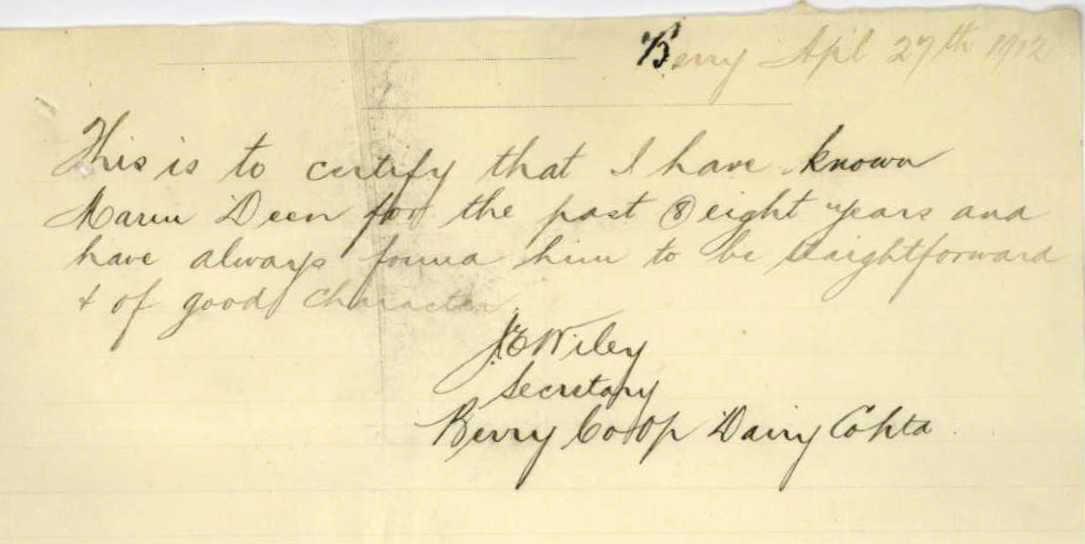 Berry Apl 27th 1912
This is to certify that I have known
Karm Deen for the past (8) eight years and
have always found him to be straightforward
+ of good character
J E Wiley
Secretary
Berry Co Op Dairy Co Ltd.